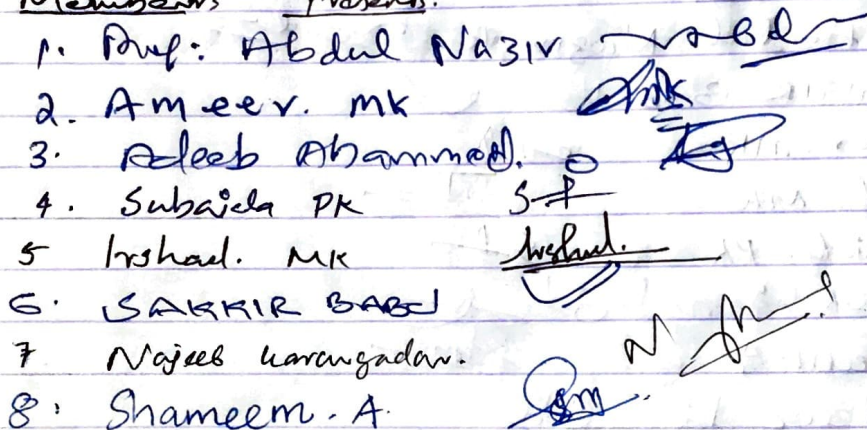 Members Present.
1. Prof: Abdul Nazir
2. Ameer. MK
3. Adeeb Ahammed.
4. Subaida PK S-P
5 Irshad. MK Irshad.
6. SAKKIR BABU
7 Najeeb Karangadan.
8. Shameem. A.